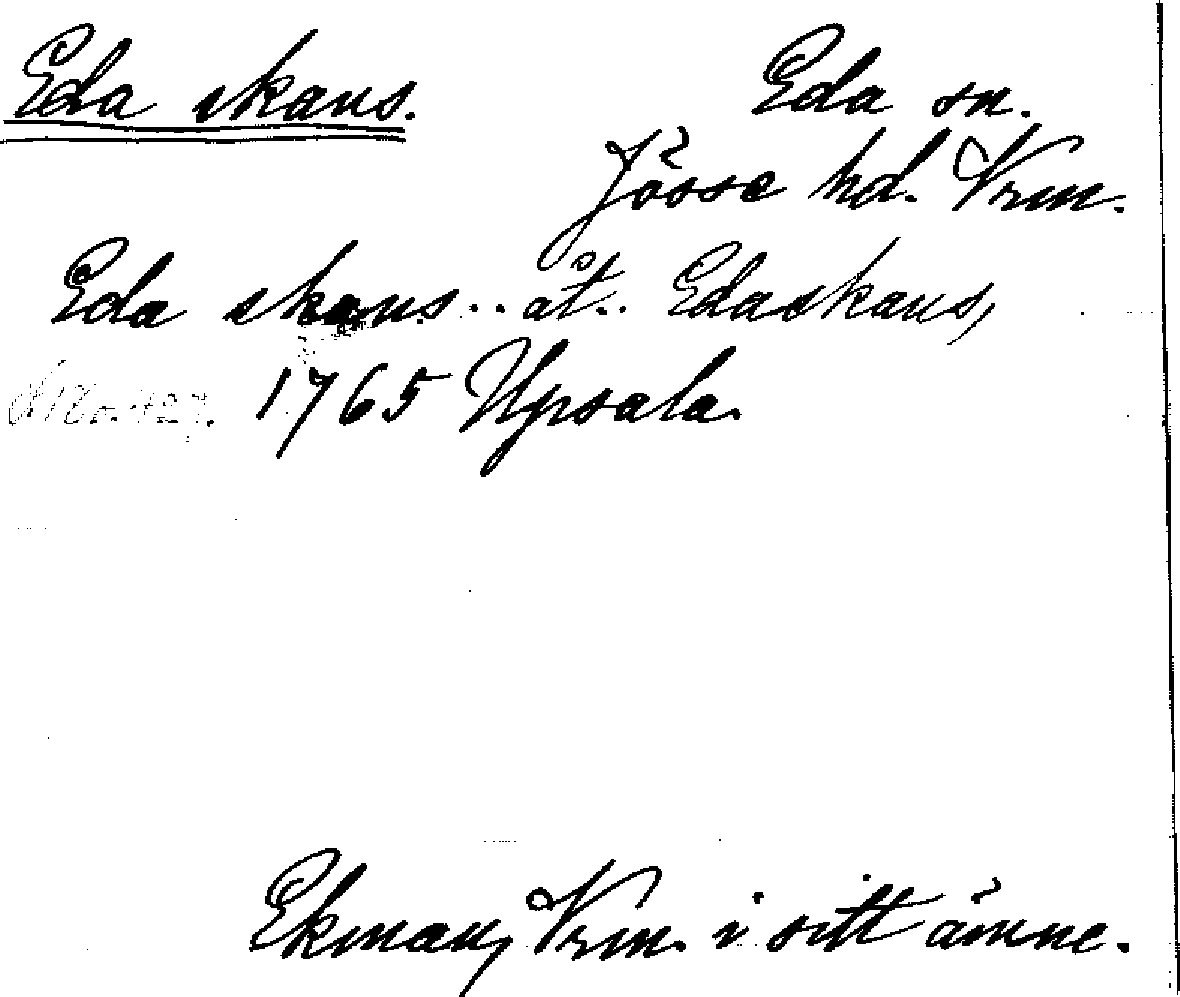 Eda skans.
Eda sn.
Jösse hd. Vrm.
Eda skans .. åt .. Edaskans,
1765 Upsala.
Ekman, Vrm. i sitt ämne.